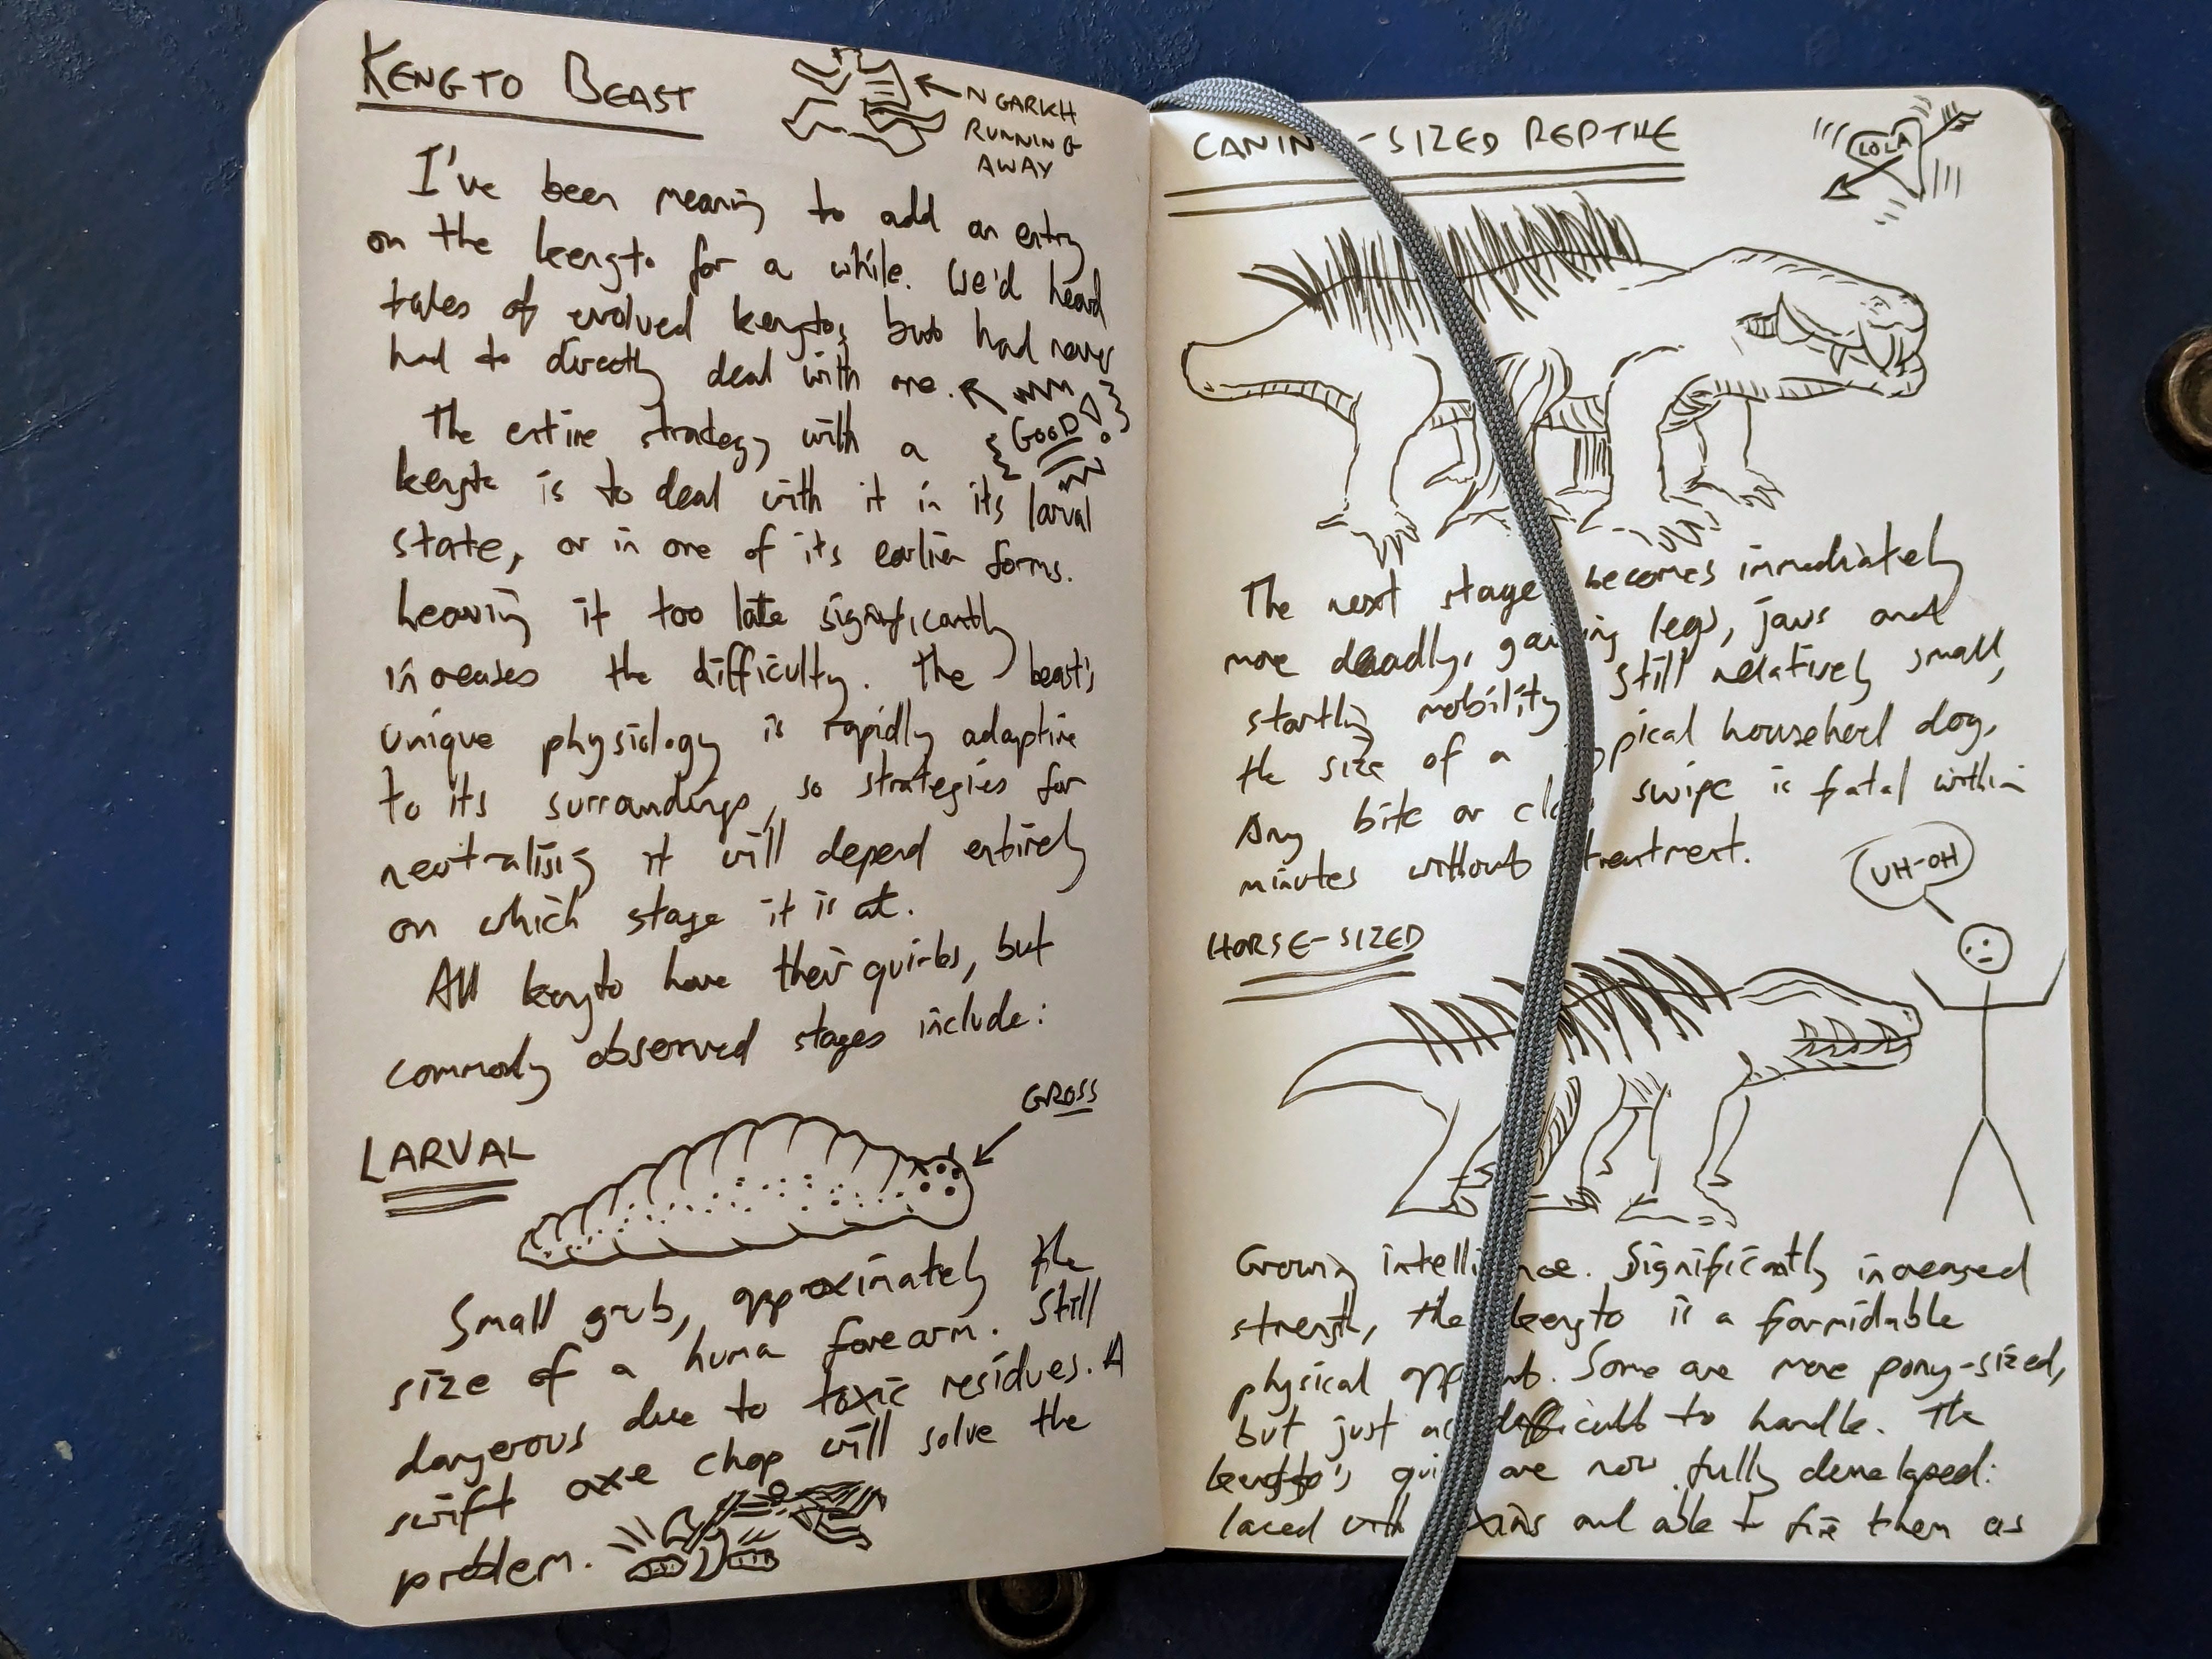 KENGTO BEAST
NGARKH
RUNNING
AWAY
I've been meaning to add an entry
on the kengto for a while. We'd heard
tales of evolved kengtos but had never
had to directly deal with one.
GOOD!
The entire strategy with a
kengto is to deal with it in its larval
state, or in one of its earlier forms.
Leaving it too late significantly
increases the difficulty. The beast's
unique physiology is rapidly adaptive
to its surroundings, so strategies for
neutralising it will depend entirely
on which stage it is at.
All kengto have their quirks, but
commonly observed stages include:
GROSS
LARVAL
Small grub, approximately the
size of a human forearm. Still
dangerous due to toxic residues. A
swift axe chop will solve the
problem.
CANIN -SIZED REPTILE
LOLA
The next stage becomes immediately
more deadly, gai ing legs, jaws and
startling mobility. Still relatively small,
the size of a pical household dog.
Any bite or cl swipe is fatal within
minutes without treatment.
UH-OH
HORSE-SIZED
Growing intelli nce. Significantly increased
strength, the kengto is a formidable
physical opp nt. Some are more pony-sized,
but just as difficult to handle. The
kengto's qui are now fully developed:
laced with xins and able to fire them as